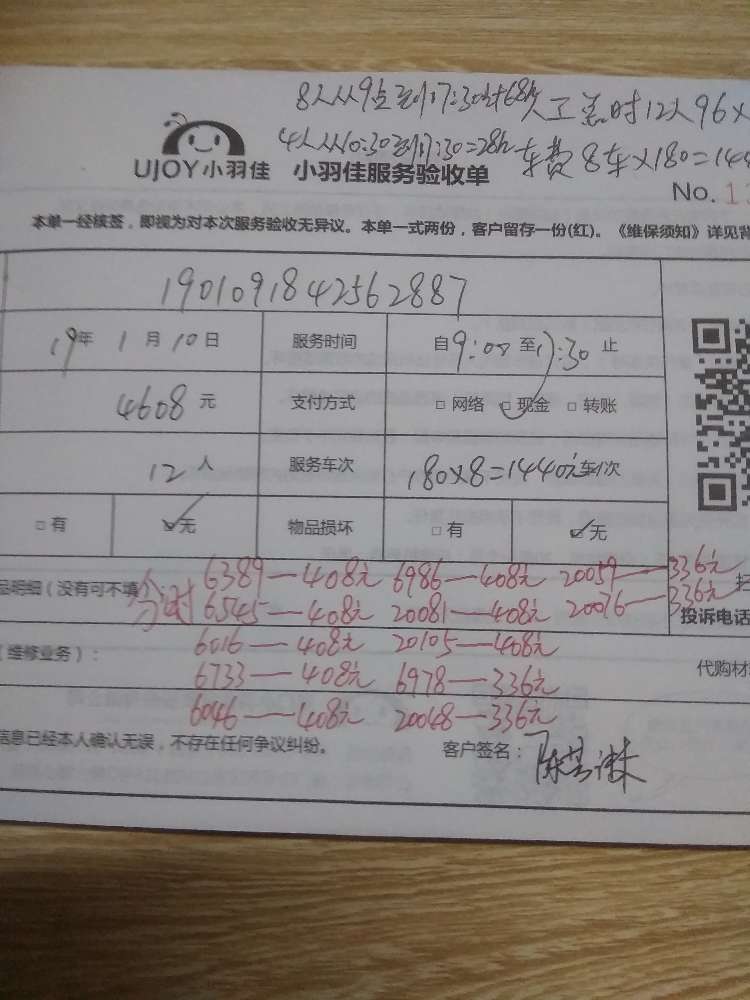 8人从9点到17:30共68h 人工总时12人96×
4人从10:30到17:30=28h 车费8车×180=144
UJOY小羽佳 小羽佳服务验收单
No. 1
本单一经核签，即视为对本次服务验收无异议。本单一式两份，客户留存一份(红)。《维保须知》详见背
1901091842562887
19年 1月10日 服务时间 自9:00至17:30止
4608元 支付方式 □网络 □现金 □转账
12人 服务车次 180×8=1440元车次
□有 □无 物品损坏 □有 □无
品明细（没有可不填 分时 6389—408元 6986—408元 20059—336元
6545—408元 20081—408元 20076—336元
投诉电话
6016—408元 20105—408元
（维修业务）： 6733—408元 6978—336元 代购材
6046—408元 20048—336元
信息已经本人确认无误，不存在任何争议纠纷。 客户签名：